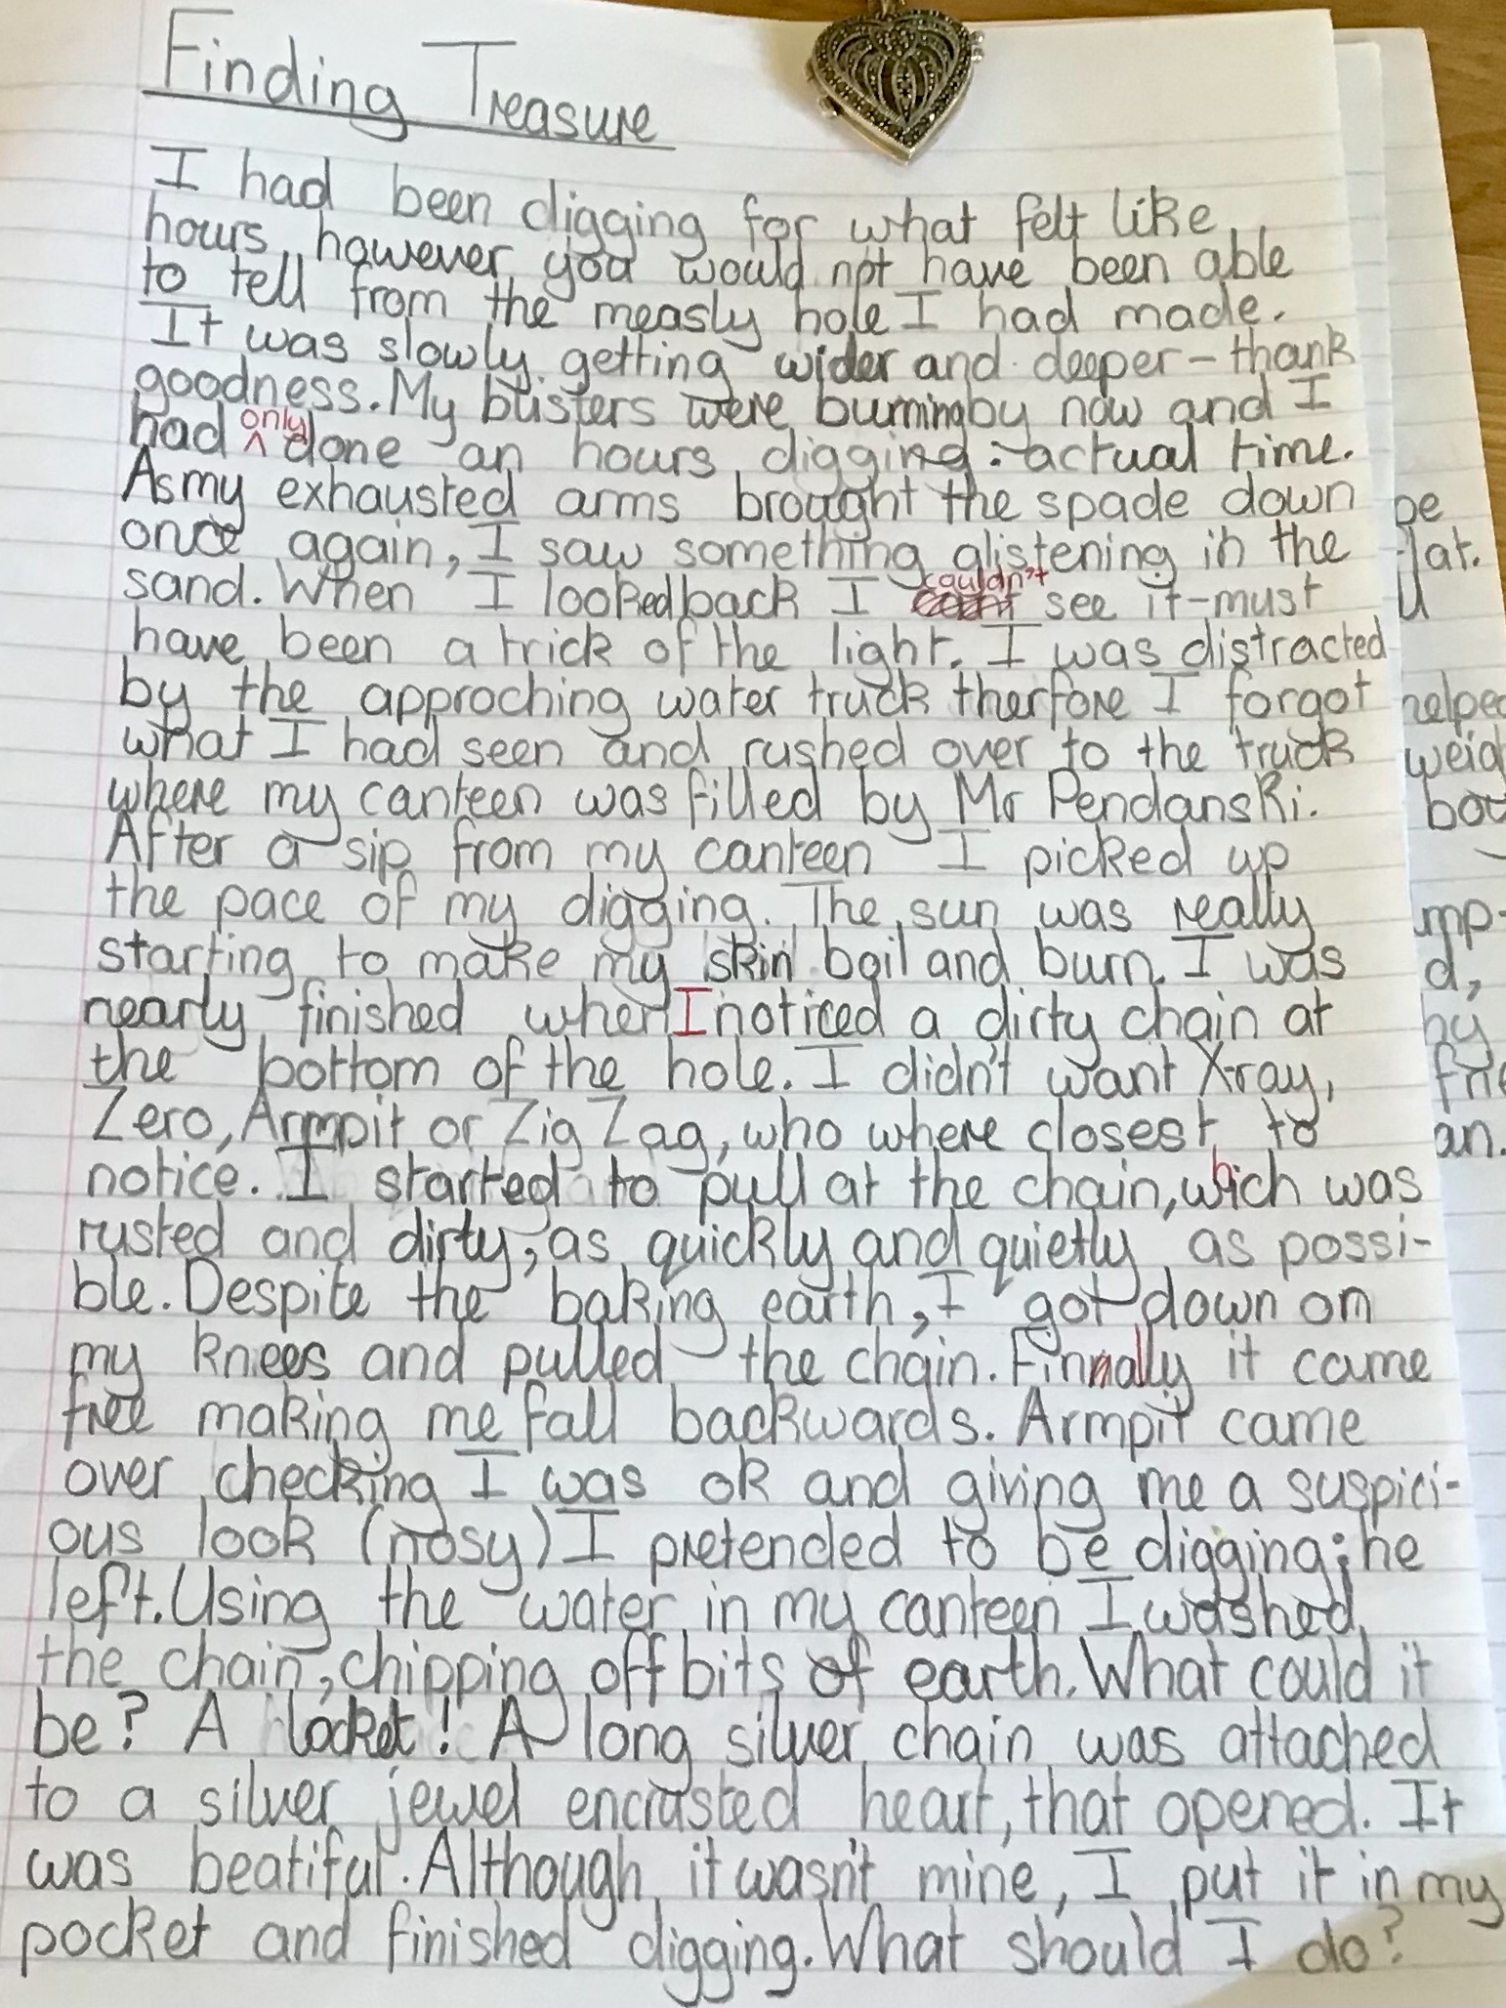 Finding Treasure
I had been digging for what felt like
hours, however you would not have been able
to tell from the measly hole I had made.
It was slowly getting wider and deeper - thank
goodness. My blisters were burning by now and I
had only done an hours digging: actual time.
As my exhausted arms brought the spade down
once again, I saw something glistening in the
sand. When I looked back I couldn't see it - must
have been a trick of the light. I was distracted
by the approching water truck therfore I forgot
what I had seen and rushed over to the truck
where my canteen was filled by Mr Pendanski.
After a sip from my canteen I picked up
the pace of my digging. The sun was really
starting to make my skin boil and burn. I was
nearly finished when I noticed a dirty chain at
the bottom of the hole. I didn't want X-ray,
Zero, Armpit or Zig Zag, who where closest to
notice. I started to pull at the chain, which was
rusted and dirty, as quickly and quietly as possi-
ble. Despite the baking earth, I got down on
my knees and pulled the chain. Finnally it came
free making me fall backwards. Armpit came
over checking I was ok and giving me a suspici-
ous look (nosy) I pretended to be digging; he
left. Using the water in my canteen I washed
the chain, chipping off bits of earth. What could it
be? A locket! A long silver chain was attached
to a silver jewel encrusted heart, that opened. It
was beatiful. Although it wasn't mine, I put it in my
pocket and finished digging. What should I do?